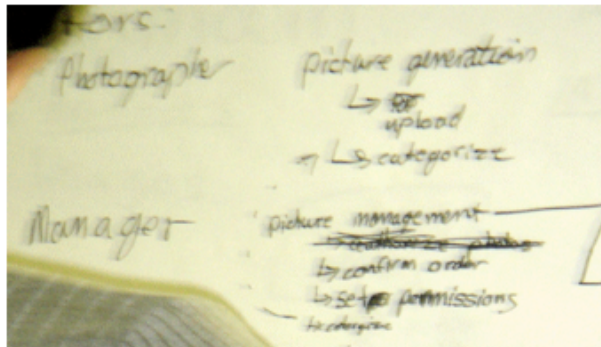 tors:
Photographer
picture generation
↳ upload
↳ categorize
Manager
picture management
↳ confirm order
↳ set permissions